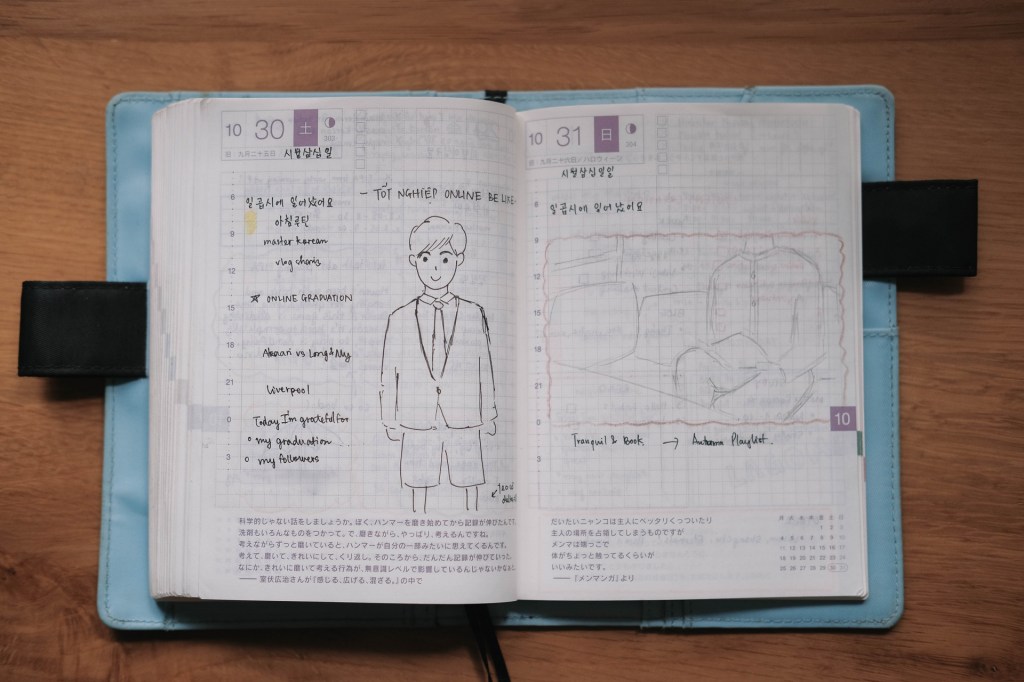 10 30 土
303
旧・九月二十五日
시월삼십일
6
일곱시에 일어났어요
아침루틴
9
master korean
12
★ ONLINE GRADUATION
15
18
21
Liverpool
0
Today I'm grateful for
my graduation
3
my followers
– TỐT NGHIỆP ONLINE BE LIKE
科学的じゃない話をしましょうか。ぼく、ハンマーを磨き始めてから記録が伸びたんです。
洗剤もいろんなものをつかって。で、磨きながら、やっぱり、考えるんですね。
考えながらずっと磨いていると、ハンマーが自分の一部みたいに思えてくるんです。
考えて、磨いて、きれいにして、くり返し。そのころから、だんだん記録が伸びていった。
なにか、きれいに磨いて考える行為が、無意識レベルで影響しているんじゃないかなあと
―― 室伏広治さんが『感じる、広げる、混ざる。』の中で
10 31 日
304
旧・九月二十六日/ハロウィーン
시월삼십일일
6
일곱시에 일어났어요
9
12
15
18
21
0
3
10
Tranquil & Book → Autumn Playlist
だいたいニャンコは主人にベッタリくっついたり
主人の場所を占領してしまうものですが
メンマは隣っこで
体がちょっと触ってるくらいが
いいみたいです。
――『メンマンガ』より
月 火 水 木 金 土 日
1 2 3
4 5 6 7 8 9 10
11 12 13 14 15 16 17
18 19 20 21 22 23 24
25 26 27 28 29 30 31